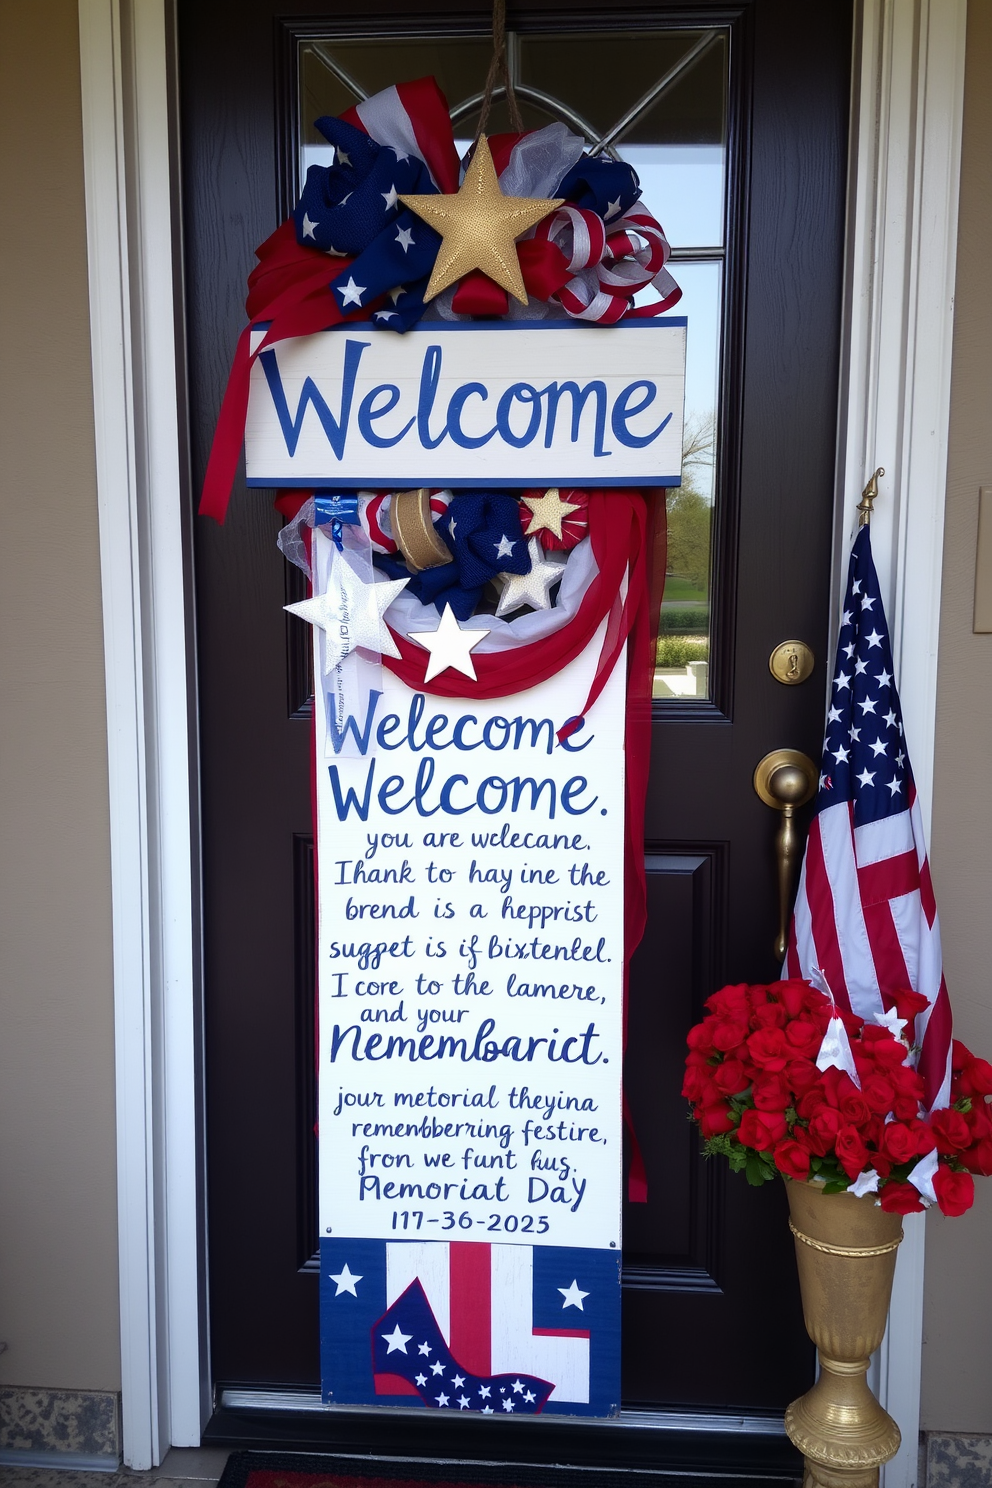 Welcome
Welecome
Welcome.
you are wclecane.
Ihank to hay ine the
brend is a hepprist
sugget is if bixtentel.
I core to the lamere,
and your
Nemembarict.
jour metorial theyina
remenbberring festire,
fron we funt hug.
Memoriat Day
117-36-2025